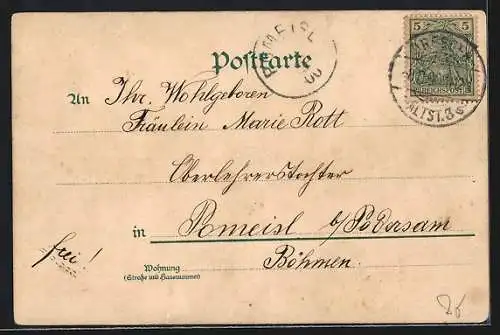 POMEISL
00
5 5
REICHSPOST
DRESDEN
ALTST. 3 s
Postkarte
An Ihr. Wohlgeboren
Fräulein Marie Rott
Oberlehrerstochter
in Pomeisl b/Podersam
Böhmen.
frei!
Wohnung
(Straße und Hausnummer)